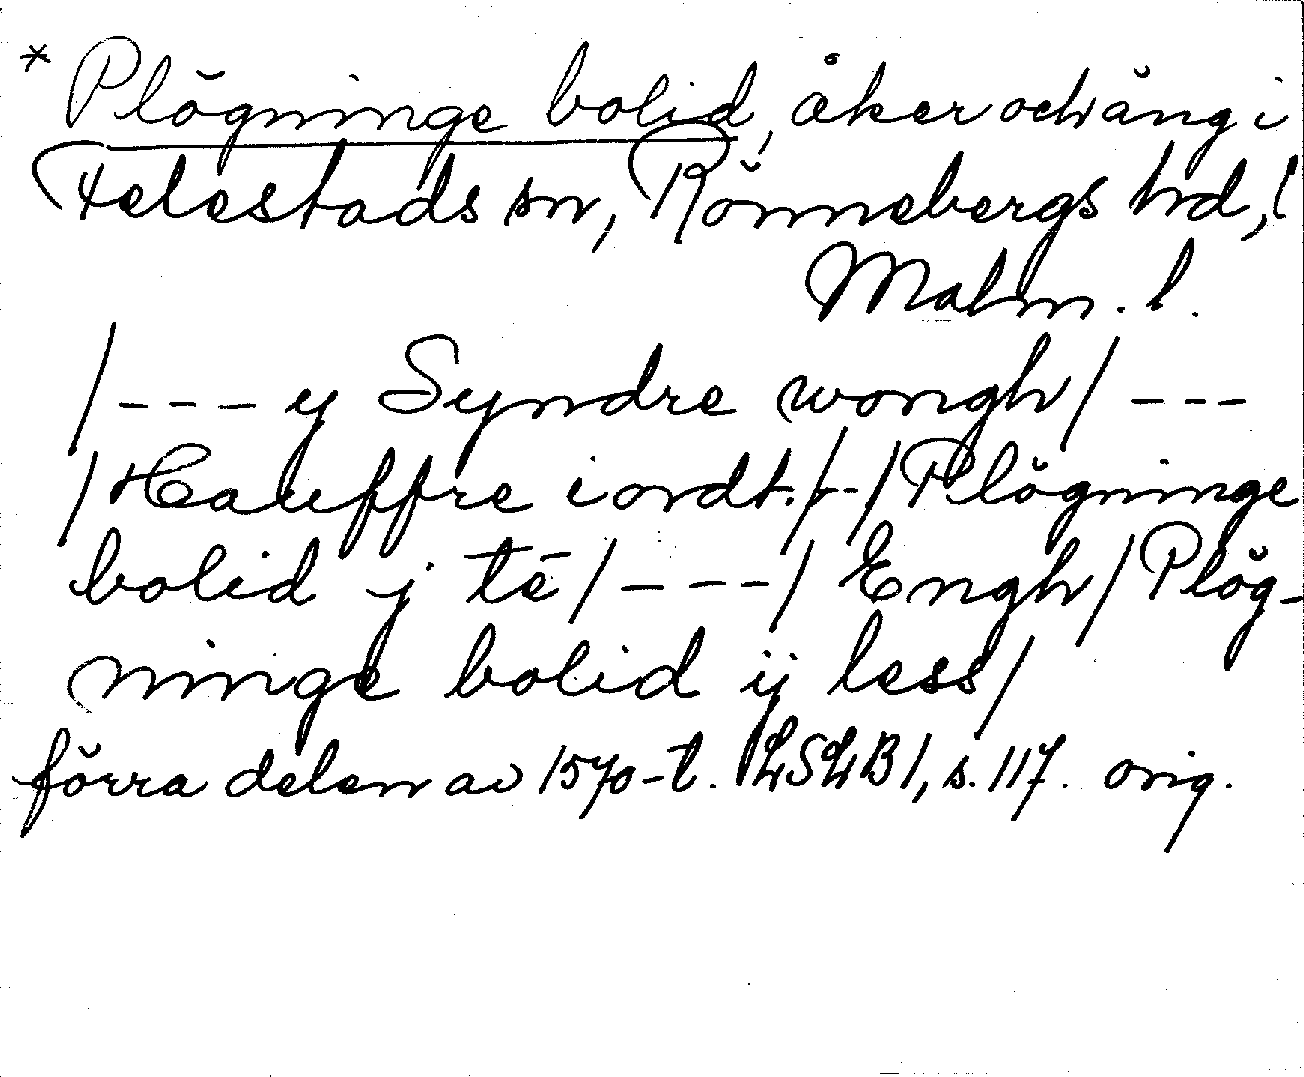 * Plögninge bolid, åker och äng i
Felestads sn, Rönnebergs hd,
Malm. l.
/--- y Syndre wongh/ ---
/Hauffre iordt./--/Plögninge
bolid j tē/---/ Engh/Plög-
ninge bolid ij less/
förra delen av 1570-t. LSLB 1, s. 117. orig.